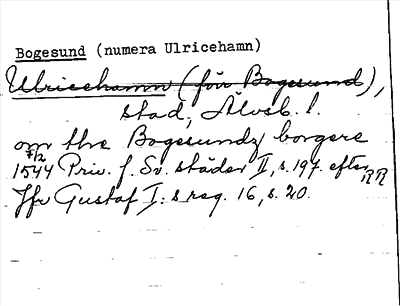 Bogesund (numera Ulricehamn)
Ulricehamn (förr Bogesund),
stad, Älvsb. l.
om the Bogesundz borgere
7/12
1544 Priv. f. Sv. städer II, s. 197. efter RR
Jfr Gustaf I:s reg. 16, s. 20.